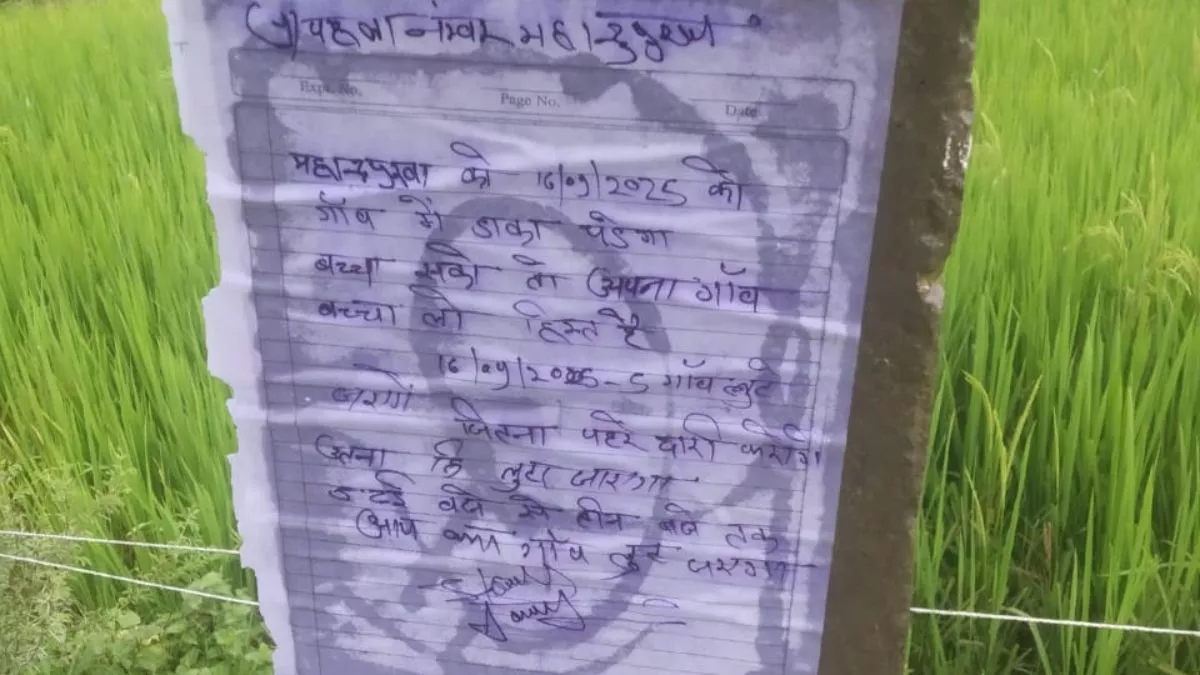 पहला नम्बर महान्दपुरवा
Expt. No. Page No. Date
महान्दपुरवा को 16/09/2025 को
गाँव में डाका पडेगा
बच्चा सको तो अपना गाँव
बच्चा लो हिम्त है
16/09/2025 - 5 गाँव लुटे
जितना पहेरे दारी करोगे
उतना हि लुटा जाएगा
बजे से तीन बजे तक
आप का गाँव लुट जाएगा